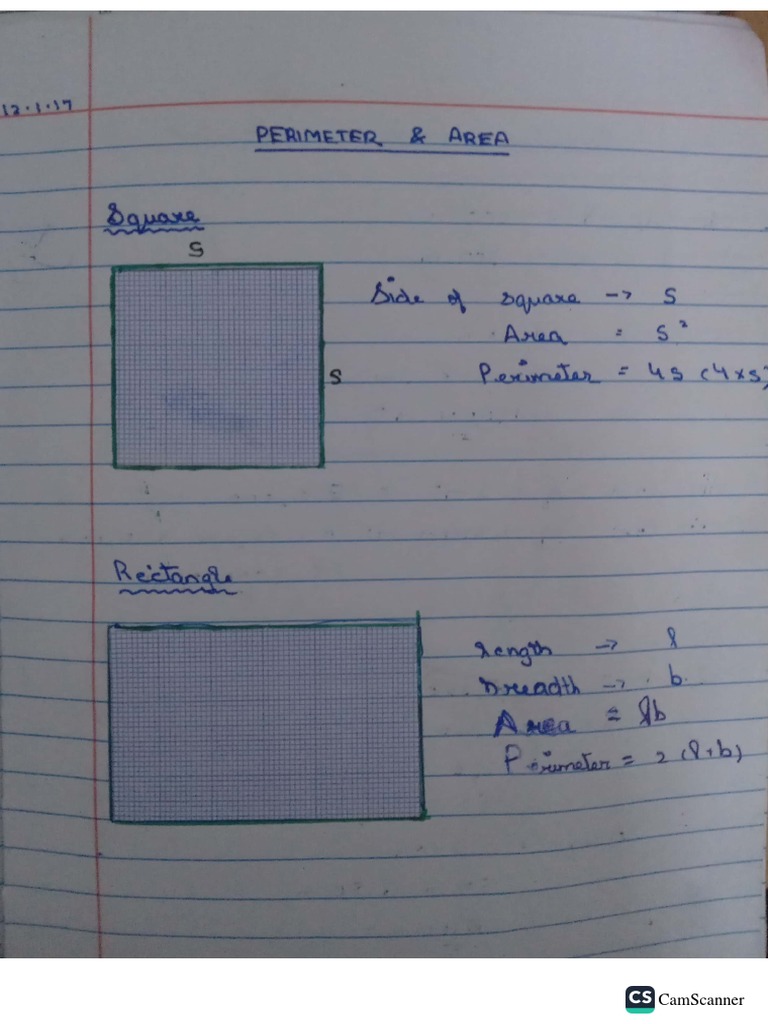 12.1.17
PERIMETER & AREA
Square
S
Side of square → S
Area = S²
S
Perimeter = 4S (4×S)
Rectangle
Length → l
breadth → b
Area = lb
Perimeter = 2 (l+b)
CS CamScanner